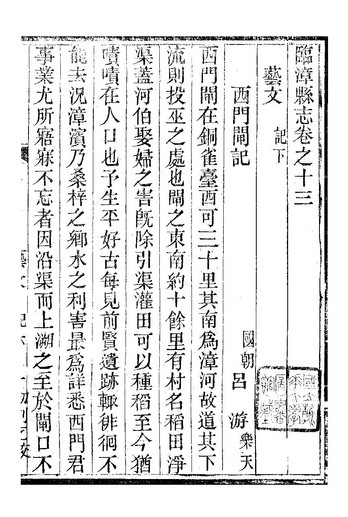 臨漳縣志卷之十三
藝文 記下
西門閘記
國朝 呂 游 樂天
西門閘在銅雀臺西可三十里其南爲漳河故道其下
流則投巫之處也閘之東南約十餘里有村名稻田淨
渠蓋河伯娶婦之害旣除引渠灌田可以種稻至今猶
嘖嘖在人口也予生平好古每見前賢遺跡輙徘徊不
能去況漳濱乃桑梓之鄉水之利害最爲詳悉西門君
事業尤所寤寐不忘者因沿渠而上溯之至於閘口不